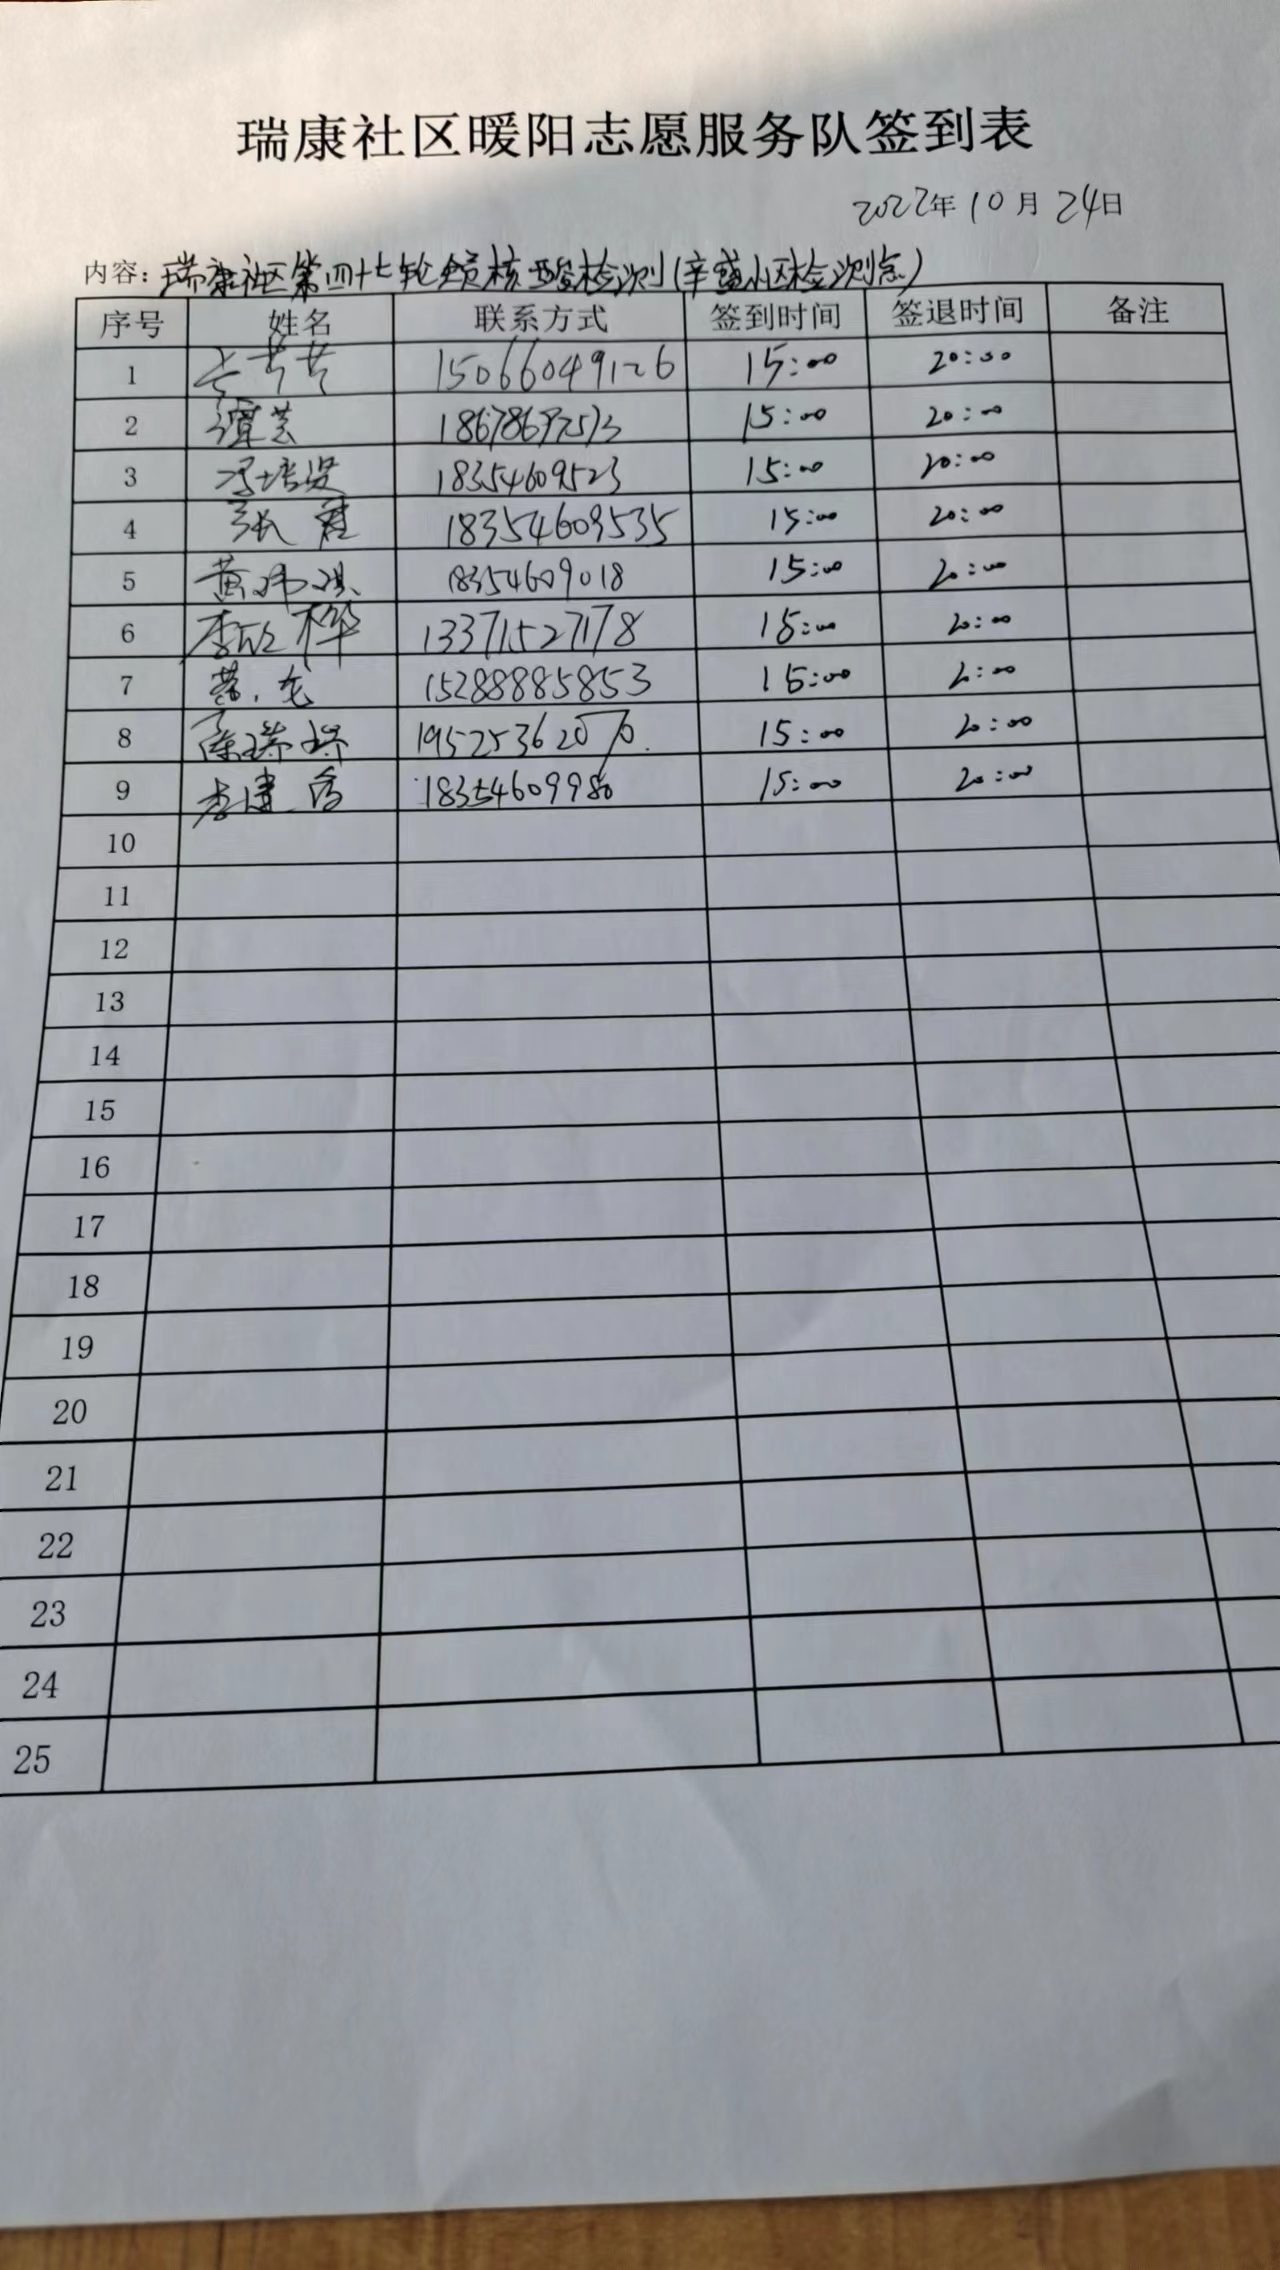 瑞康社区暖阳志愿服务队签到表
2022年10月24日
内容：瑞康社区第四十七轮全员核酸检测(辛盛小区检测点)
序号 姓名 联系方式 签到时间 签退时间 备注
1 15066049126 15:00 20:00
2 谭芸 15:00 20:00
3 冯培贤 18354609523 15:00 20:00
4 张君 18354609535 15:00 20:00
5 黄 18354609018 15:00 20:00
6 李欣桦 13371527178 15:00 20:00
7 15288885853 15:00 20:00
8 陈瑞 15:00 20:00
9 李建香 18354609980 15:00 20:00
10
11
12
13
14
15
16
17
18
19
20
21
22
23
24
25